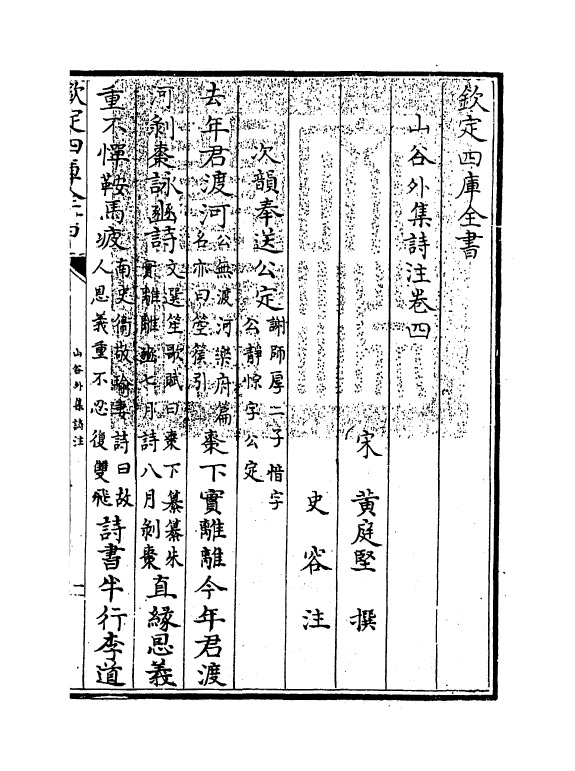 欽定四庫全書
山谷外集詩注卷四
宋 黄庭堅 撰
史容 注
次韻奉送公定謝師厚二子愔字公静悰字公定
去年君渡河公無渡河樂府篇名亦曰箜篌引棗下實離離今年君渡
河剥棗詠豳詩文選笙歌賦曰棗下纂纂朱實離離豳七月詩八月剥棗直緣恩義
重不憚鞍馬疲南史衛敬瑜妻詩曰故人恩義重不忍復雙飛詩書半行李道
欽定四庫全書
山谷外集詩注
一